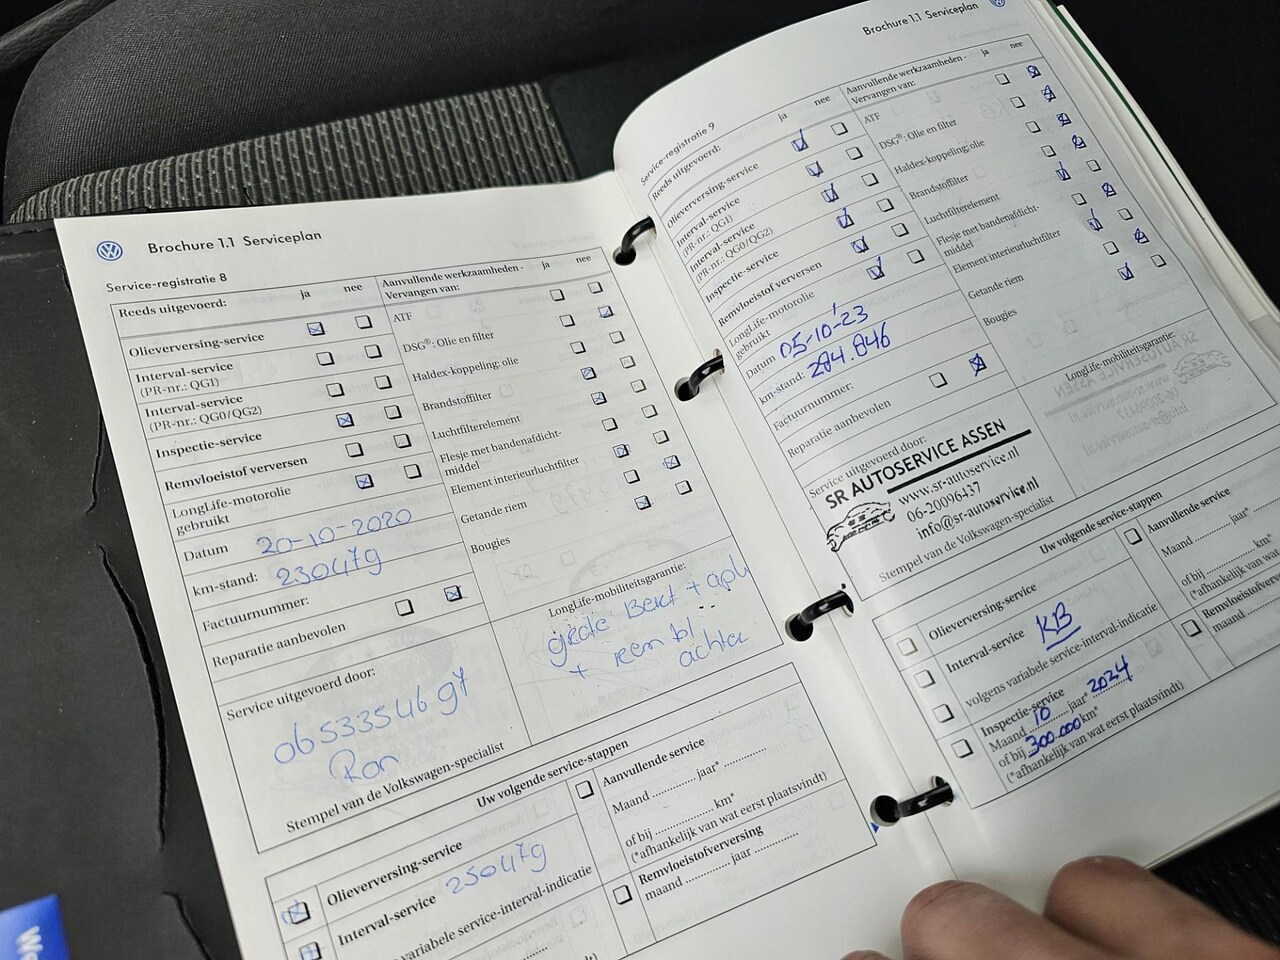 Brochure 1.1 Serviceplan
Service-registratie 8
Reeds uitgevoerd: ja nee
Olieverversing-service
Interval-service
(PR-nr.: QG1)
Interval-service
(PR-nr.: QG0/QG2)
Inspectie-service
Remvloeistof verversen
LongLife-motorolie
gebruikt
Datum 20-10-2020
km-stand: 230479
Factuurnummer:
Reparatie aanbevolen
Service uitgevoerd door:
Ron
Stempel van de Volkswagen-specialist
Aanvullende werkzaamheden - ja nee
Vervangen van:
ATF
DSG®: Olie en filter
Haldex-koppeling: olie
Brandstoffilter
Luchtfilterelement
Flesje met bandenafdicht-
middel
Element interieurluchtfilter
Getande riem
Bougies
LongLife-mobiliteitsgarantie:
grote Beurt + apk
+ rem bl
achter
Uw volgende service-stappen
Olieverversing-service
Interval-service 250479
variabele service-interval-indicatie
Aanvullende service
Maand ............ jaar* ............
of bij .................... km*
(*afhankelijk van wat eerst plaatsvindt)
Remvloeistofverversing
maand ............ jaar ............
Brochure 1.1 Serviceplan
Service-registratie 9
Reeds uitgevoerd: ja nee
Olieverversing-service
Interval-service
(PR-nr.: QG1)
Interval-service
(PR-nr.: QG0/QG2)
Inspectie-service
Remvloeistof verversen
LongLife-motorolie
gebruikt
Datum 05-10-'23
km-stand: 284.846
Factuurnummer:
Reparatie aanbevolen
Service uitgevoerd door:
SR AUTOSERVICE ASSEN
www.sr-autoservice.nl
06-20096437
info@sr-autoservice.nl
Stempel van de Volkswagen-specialist
Aanvullende werkzaamheden - ja nee
Vervangen van:
ATF
DSG®: Olie en filter
Haldex-koppeling: olie
Brandstoffilter
Luchtfilterelement
Flesje met bandenafdicht-
middel
Element interieurluchtfilter
Getande riem
Bougies
LongLife-mobiliteitsgarantie:
Uw volgende service-stappen
Olieverversing-service
Interval-service KB
volgens variabele service-interval-indicatie
Inspectie-service
Maand 10 jaar* 2024
of bij 300.000 km*
(*afhankelijk van wat eerst plaatsvindt)
Aanvullende service
Maand ............ jaar*
of bij .................... km*
(*afhankelijk van wat
maand